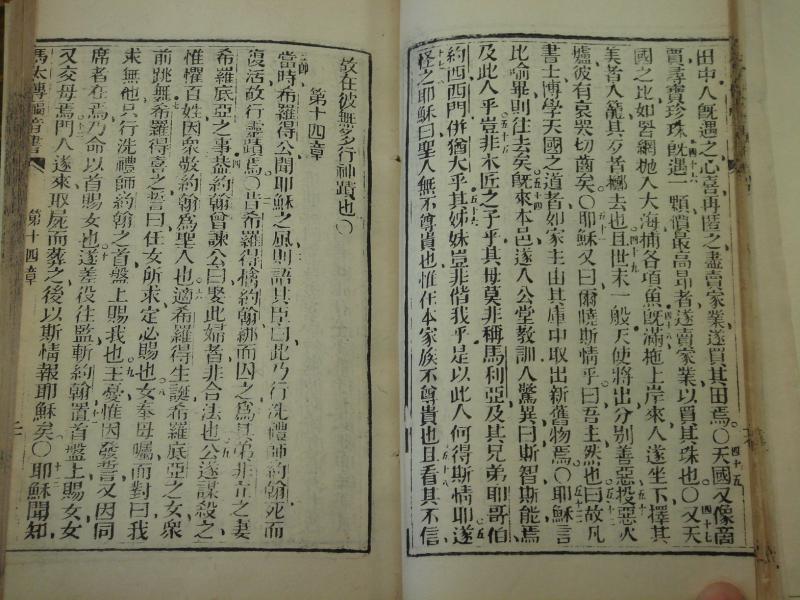 田中人旣遇之心喜再匿之盡賣家業遂買其田焉〇天國又像商
賈尋寶珍珠旣遇一顆價最高昻者遂賣家業以買其珠也〇又天
國之比如罟網抛入大海捕各項魚旣滿拖上岸來人遂坐下擇其
美者入籠其歹者擲去也且世末一般天使將出分别善惡投惡火
爐彼有哀哭切齒矣〇耶穌又曰爾曉斯情乎曰吾主然也曰故凡
書士博學天國之道者如家主由其庫中取出新舊物焉〇耶穌言
比喻畢則往去矣旣來本邑遂入公堂敎訓人驚異曰斯智斯能焉
及此人乎豈非木匠之子乎其母莫非稱馬利亞及其兄弟耶哥伯
約西西門併猶大乎其姊妹豈非偕我乎是以此人何得斯情耶遂
怪之耶穌曰聖人無不尊貴也惟在本家族不尊貴也且看其不信
故在彼無多行神蹟也〇
第十四章
當時希羅得公聞耶穌之風則語其臣曰此乃行洗禮師約翰死而
復活故行靈蹟焉〇昔希羅得擒約翰綁而囚之爲其弟非立之妻
希羅底亞之事葢約翰曾諫公曰娶此婦者非合法也公遂謀殺之
惟懼百姓因衆敬約翰爲聖人也適希羅得生誕希羅底亞之女衆
前跳舞希羅得喜之誓曰任女所求定必賜也女奉母囑而對曰我
求無他只行洗禮師約翰之首盤上賜我也王憂惟因發誓又因同
席者在焉乃命以首賜女也遂差役往監斬約翰置首盤上賜女女
又交母焉門人遂來取屍而葬之後以斯情報耶穌矣〇耶穌聞知
馬太傳福音書 第十四章